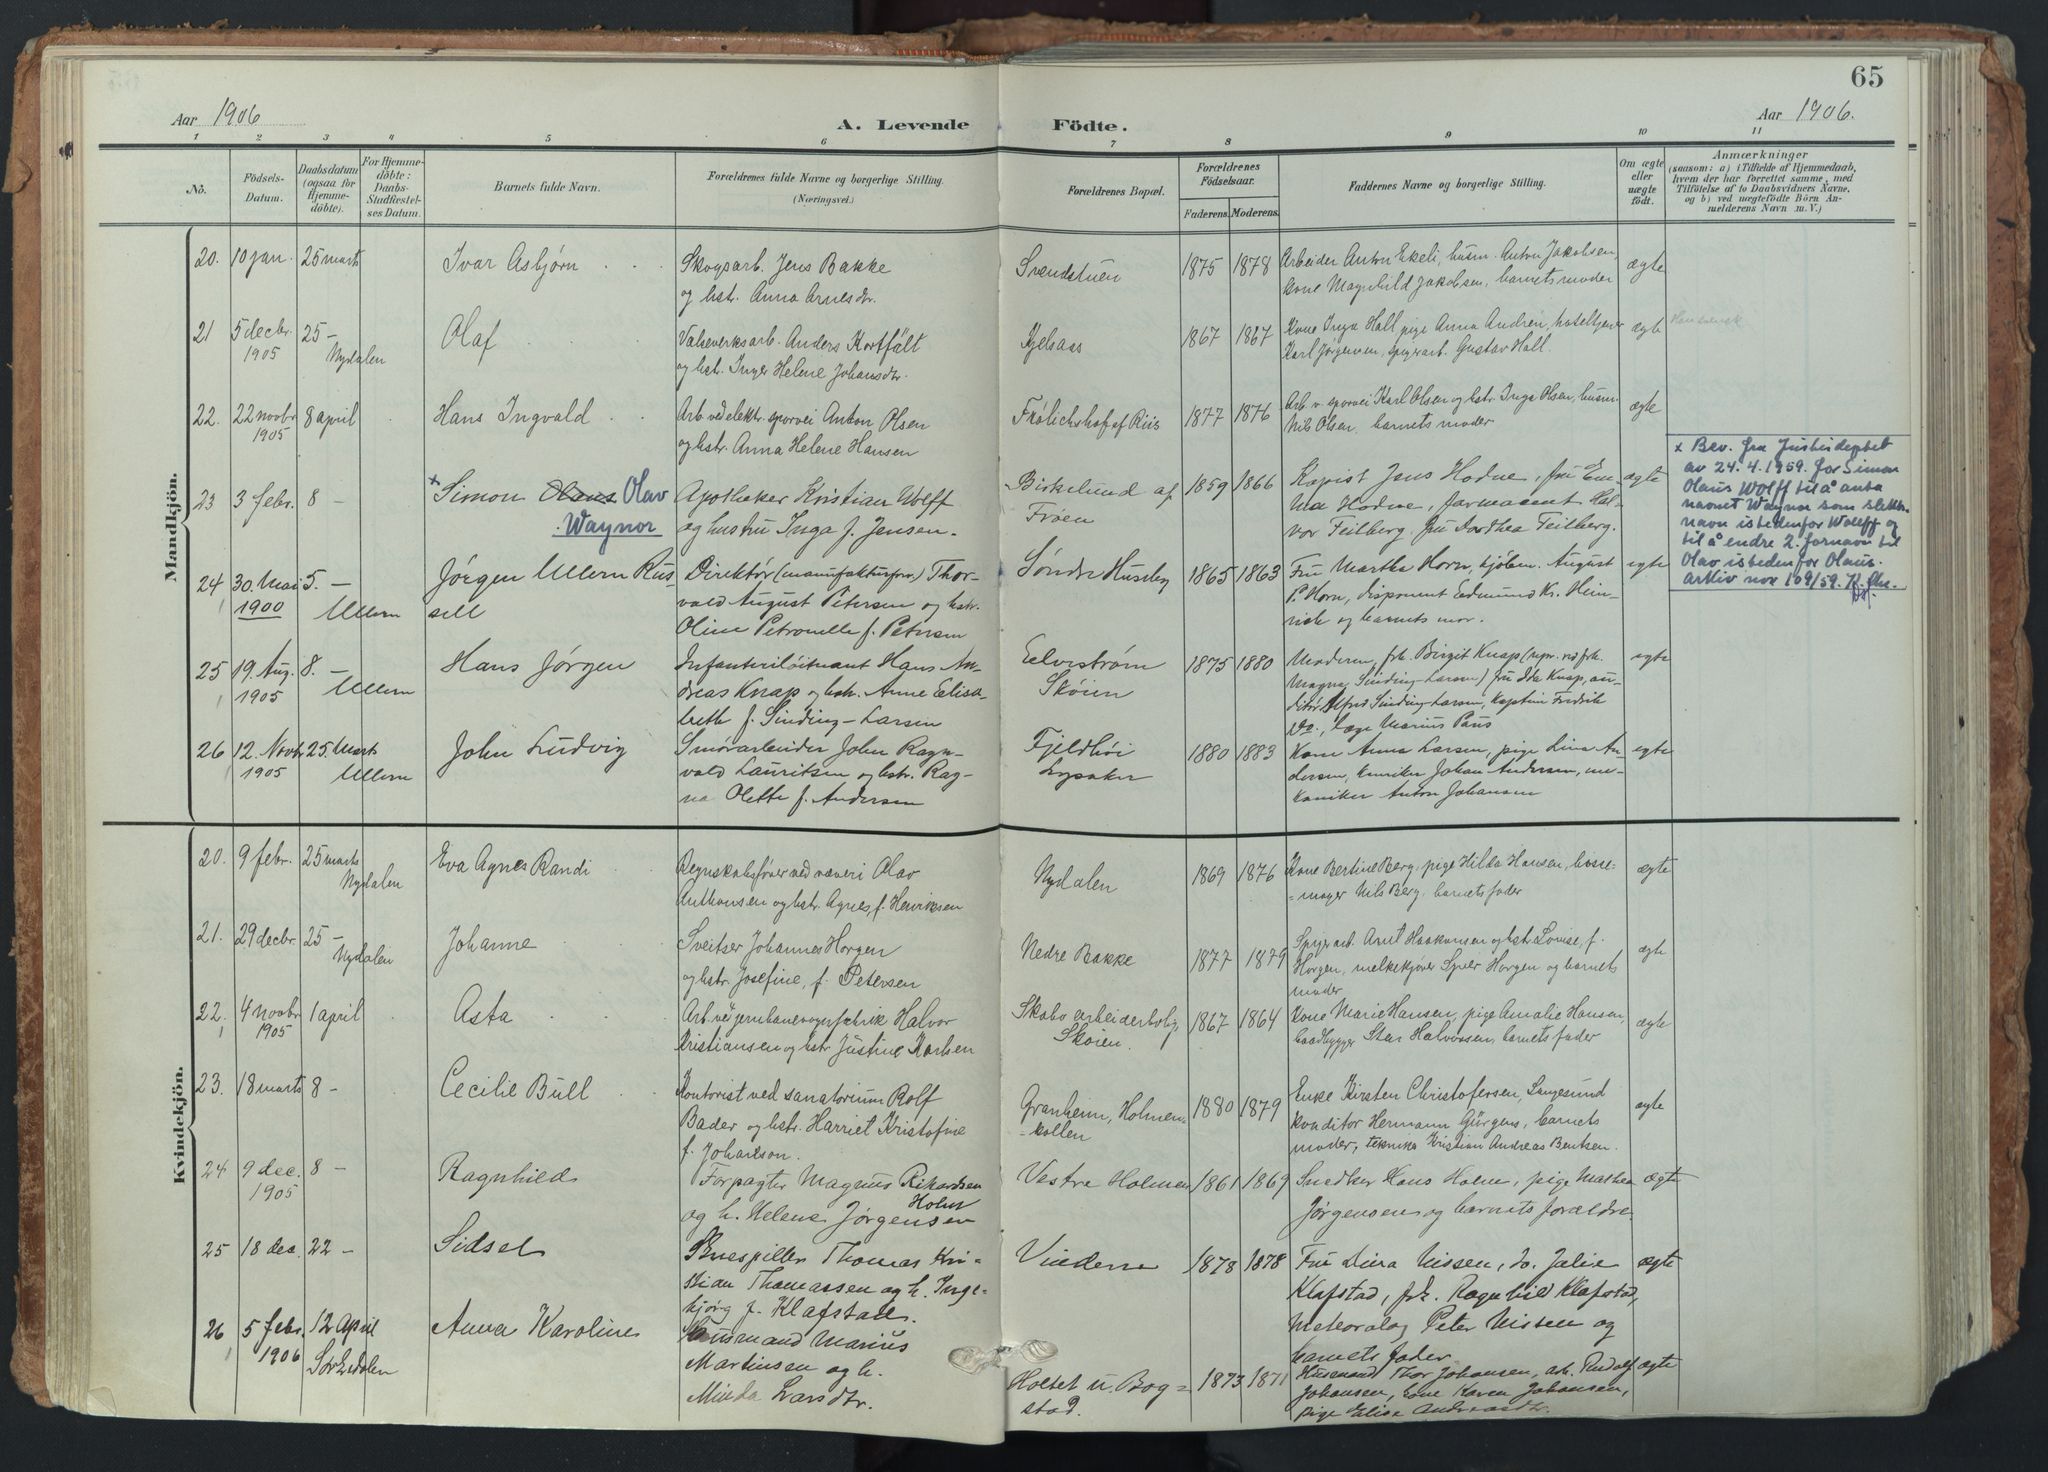 65
Aar 1906
A. Levende Födte.
Aar 1906.
1 2 3 4 5 6 7 8 9 10 11
No.
Födsels-
Datum.
Daabsdatum
(ogsaa for
Hjemme-
döbte).
For Hjemme-
döbte:
Daabs-
Stadfæstel-
ses Datum.
Barnets fulde Navn.
Forældrenes fulde Navne og borgerlige Stilling.
(Næringsvei.)
Forældrenes Bopæl.
Forældrenes
Födselsaar.
Faderens. Moderens.
Faddernes Navne og borgerlige Stilling.
Om ægte
eller
uægte
födt.
Anmærkninger
(saasom: a) i Tilfælde af Hjemmedaab,
hvem der har forrettet samme, med
Tilföielse af to Daabsvidners Navne,
og b) ved uægtefödte Börn An-
melderens Navn m. V.)
Mandkjön.
20. 10 jan. 25 marts Ivar Asbjørn
Skogsarb. Jens Bakke
og hstr. Anna Arnesdtr.
Svendstuen 1875 1878
Arbeider Anton Ekeli, husm. Anton Jakobsen,
kone Magnhild Jakobsen, barnets moder
ægte
21 5 decbr. 1905 25 – Nydalen Olaf
Valseverksarb. Anders Kortfält
og hstr. Inger Helene Johansdtr.
Kjelsaas 1867 1867
Kone Inga Hall, pige Anna Andrén, hotelltjener
Karl Jørgensen, spigerarb. Gustav Hall.
ægte
22. 22 novbr 1905 8 april Hans Ingvald
Arb. ved elektr. sporvei Anton Olsen
og hstr. Anna Helene Hansen
Frølichshof af Riis 1877 1876
Arb. v. sporvei Karl Olsen og hstr. Inga Olsen, husm.
Nils Olsen, barnets moder
ægte
23 3 febr. 8 – x Simon Olaus Olav
Waynor
Apotheker Kristian Wolff
og hustru Inga f. Jensen
Birkelund af
Frøen
1859 1866
Kopist Jens Hodne, fru Em-
ma Hodne, farmaceut Hal-
vor Feilberg, fru Dorthea Feilberg.
ægte
x Bev. fra Justisdeptet
av 24.4.1959 for Simon
Olaus Wolff til å anta
navnet Waynor som slekts-
navn istedenfor Wolff og
til å endre 2. fornavn til
Olav isteden for Olaus.
Arkiv nor 109/59.
24 30. Mai 1900 5. – Ullern Jørgen Ullern Rus
sell
Direktør (manufakturforr.) Thor-
vald August Petersen og hstr.
Oline Petronelle f. Petersen
Søndre Huseby 1865 1863
Fru Martha Horn, kjøbm. August
P. Horn, disponent Edmund Kr. Hein-
rich og barnets mor.
egte
25 19. Aug. 1905 8. – Ullern Hans Jørgen
Infanteriløitnant Hans An-
dreas Knap og hstr. Anne Elisa-
beth f. Sinding-Larsen
Elvestrøm
Skøien
1875 1880
Moderen, frk. Birgit Knap (repr. ved frk.
Magna Sinding-Larsen) fru Ida Knap, au-
ditør Alfred Sinding-Larsen, kaptein Fredrik
Do., læge Marius Paus
egte
26 12. Novbr 1905 25. Marts Ullern John Ludvig
Smørarbeider John Ragn-
vald Lauritsen og hstr. Rag-
na Olette f. Andersen
Fjeldhøi
Lysaker
1880 1883
Kone Anna Larsen, pige Lina An-
dersen, kemiker Johan Andersen, me-
kaniker Anton Johansen
egte
Kvindekjön.
20. 9 febr. 25 marts Nydalen Eva Agnes Randi
Regnskabsfører ved væveri Olav
Anthonsen og hstr. Agnes, f. Henriksen
Nydalen 1869 1876
Kone Bertine Berg, pige Hilda Hansen, bøsse-
mager Nils Berg, barnets fader
ægte
21. 29 decbr. 25 – Nydalen Johanne
Sveitser Johannes Horgen
og hstr. Josefine, f. Petersen
Nedre Bakke 1877 1879
Spigerarb. Arnt Haakonsen og hstr. Lovise, f.
Horgen, melkekjører Syver Horgen og barnets
moder
ægte
22. 4 novbr 1905 1 april Asta
Arb. ved jernbanevognfabrik Halvor
Kristiansen og hstr Justine Karlsen
Skabo arbeiderbolig,
Skøien.
1867 1864
Kone Marie Hansen, pige Amalie Hansen,
baadbygger Star Halvorsen, barnets fader
ægte
23. 18 marts 8 – Cecilie Bull
Kontorist ved sanatorium Rolf
Bader og hstr. Harriet Kristofine
f. Johanson.
Granheim, Holmen-
kollen
1880 1879
Enke Kirsten Christofersen, Langesund
konditor Hermann Görgens, barnets
moder, tekniker Kristian Andreas Bentsen.
ægte
24 9 dec. 1905 8 – Ragnhild
Forpagter Magnus Rikardsen
Holm
og h. Helene Jørgensen
Vestre Holmen 1861 1869
Snedker Hans Holm, pige Mathea
Jørgensen og barnets forældre.
ægte
25 18 dec. 22 – Sidsel
Skuespiller Thomas Kri-
stian Thomassen og h. Inge-
bjørg f. Klafstad.
Vinderen 1878 1878
Fru Dina Nissen, do. Julie
Klafstad, frk. Ragnhild Klafstad,
Meteorolog Peter Nissen og
barnets fader
ægte
26 5 febr. 1906 12 April Sørkedalen Anna Karoline
Husmand Marius
Martinsen og h.
Minda Larsdtr.
Holtet u. Bog-
stad.
1873 1871
Husmand Thor Johansen, arb. Rudolf
Johansen, kone Karen Johansen,
pige Elise Andreasdtr.
ægte